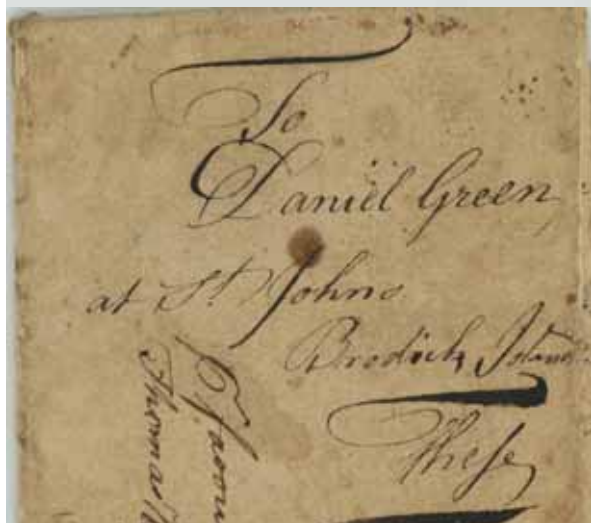 To
Daniel Green
at St Johns
Brodick Island
These
Favour
Thomas